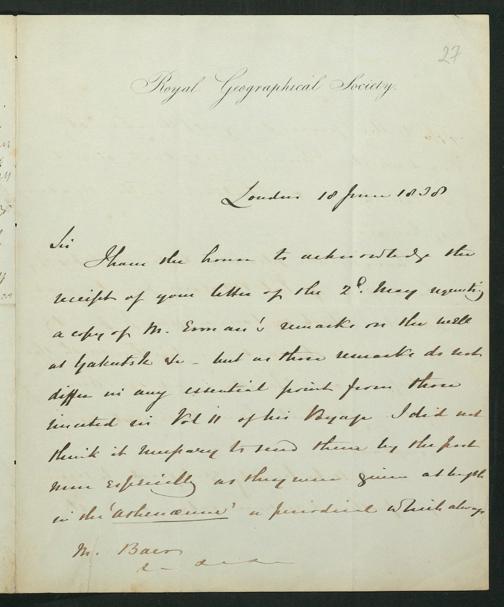 27
Royal Geographical Society.
London 18 June 1838
Sir
I have the honor to acknowledge the
receipt of your letter of the 2d. May requesting
a copy of M. Erman's remarks on the well
at Yakutsk &c - but as those remarks do not
differ in any essential point from those
inserted in Vol II of his Voyage I did not
think it necessary to send them by the post
more especially as they were given at length
in the 'Athenaeum' a periodical which always
M. Baer